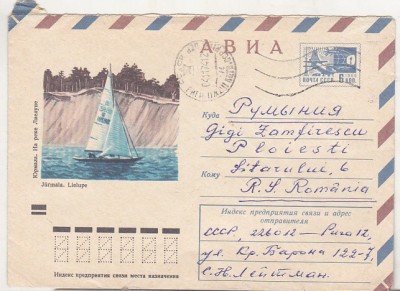 АВИА
ПОЧТА СССР
Куда Румыния
Gigi Zamfirescu
Ploiesti
Кому Sitarului, 6
R.S. România
Юрмала. На реке Лиелупе
Jūrmala. Lielupe
Индекс предприятия связи и адрес отправителя
СССР, 226012 — Рига 12,
ул. Кр. Барона 122-7,
С. Н. Лейтман.
Индекс предприятия связи места назначения